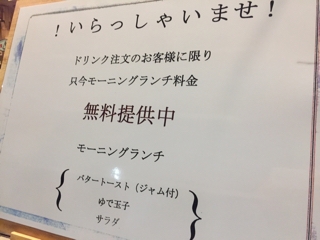 ！いらっしゃいませ！
ドリンク注文のお客様に限り
只今モーニングランチ料金
無料提供中
モーニングランチ
バタートースト（ジャム付）
ゆで玉子
サラダ